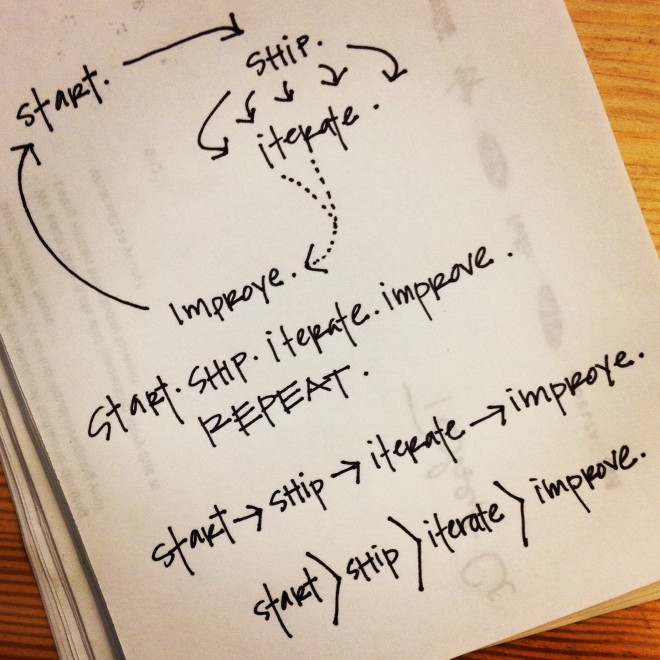 start.
SHIP.
iterate.
improve.
start. SHIP. iterate. improve.
REPEAT.
start → SHIP → iterate → improve.
start > SHIP > iterate > improve.